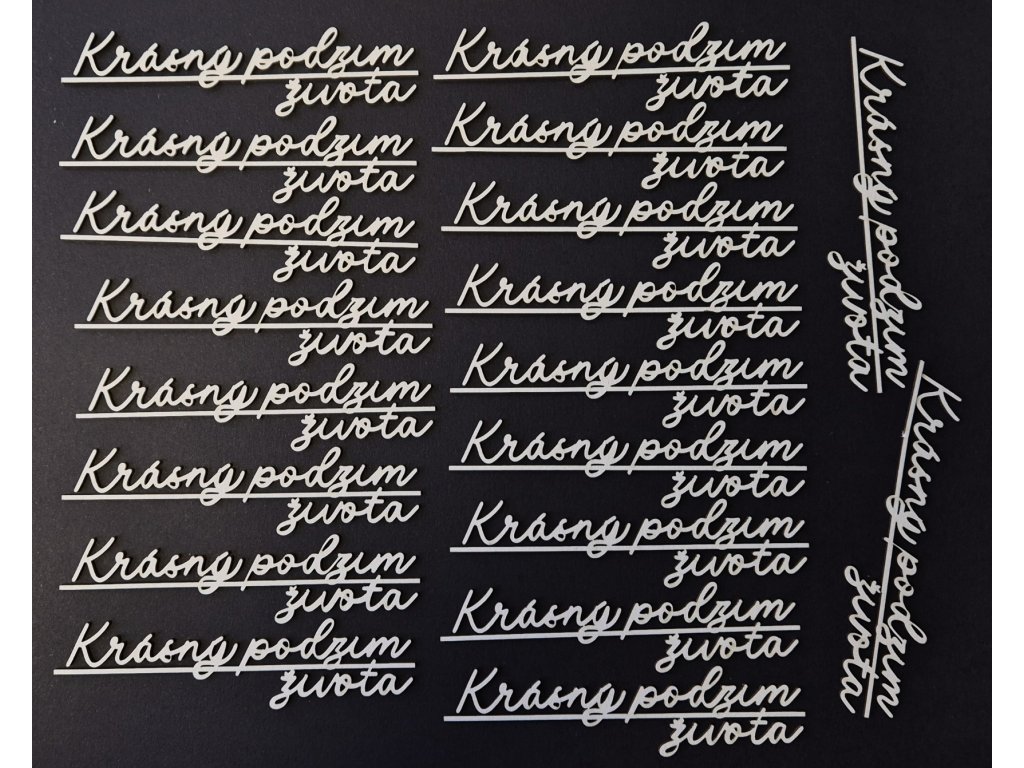 Krásný podzim
života
Krásný podzim
života
Krásný podzim
života
Krásný podzim
života
Krásný podzim
života
Krásný podzim
života
Krásný podzim
života
Krásný podzim
života
Krásný podzim
života
Krásný podzim
života
Krásný podzim
života
Krásný podzim
života
Krásný podzim
života
Krásný podzim
života
Krásný podzim
života
Krásný podzim
života
Krásný podzim
života
Krásný podzim
života
Krásný podzim
života